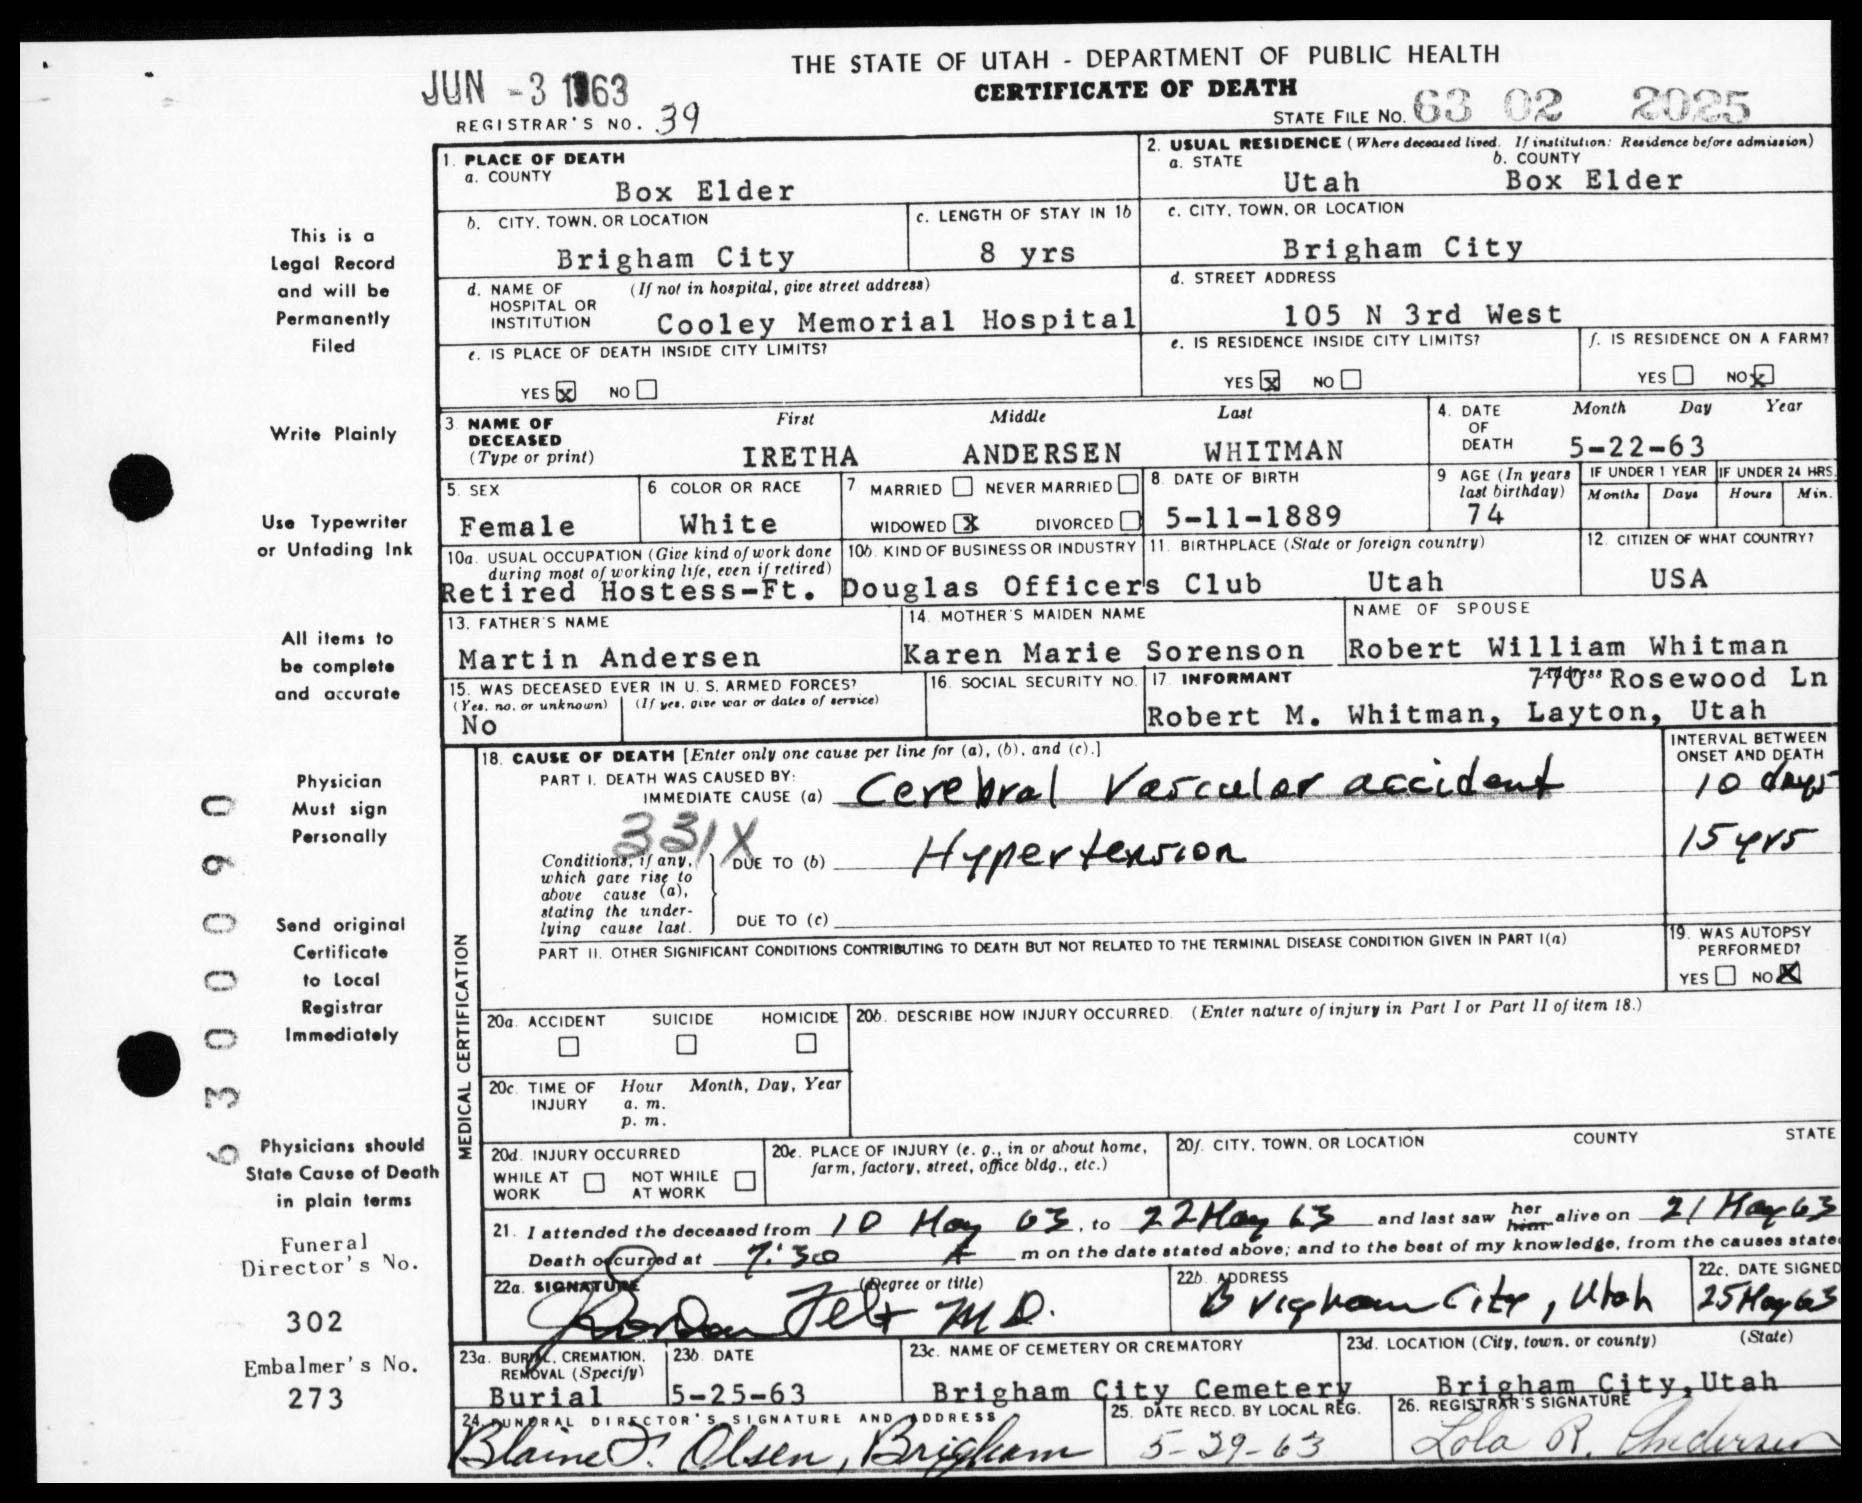 THE STATE OF UTAH - DEPARTMENT OF PUBLIC HEALTH
CERTIFICATE OF DEATH
JUN -3 1963
REGISTRAR'S NO. 39
STATE FILE NO. 63 02 2025
1. PLACE OF DEATH
a. COUNTY
Box Elder
2. USUAL RESIDENCE (Where deceased lived. If institution: Residence before admission)
a. STATE b. COUNTY
Utah Box Elder
b. CITY, TOWN, OR LOCATION
Brigham City
c. LENGTH OF STAY IN 1b
8 yrs
c. CITY, TOWN, OR LOCATION
Brigham City
d. NAME OF (If not in hospital, give street address)
HOSPITAL OR
INSTITUTION Cooley Memorial Hospital
d. STREET ADDRESS
105 N 3rd West
e. IS PLACE OF DEATH INSIDE CITY LIMITS?
YES x NO
e. IS RESIDENCE INSIDE CITY LIMITS?
YES x NO
f. IS RESIDENCE ON A FARM?
YES NO x
3. NAME OF First Middle Last
DECEASED
(Type or print) IRETHA ANDERSEN WHITMAN
4. DATE Month Day Year
OF
DEATH 5-22-63
5. SEX
Female
6 COLOR OR RACE
White
7 MARRIED NEVER MARRIED
WIDOWED X DIVORCED
8. DATE OF BIRTH
5-11-1889
9 AGE (In years
last birthday)
74
IF UNDER 1 YEAR IF UNDER 24 HRS.
Months Days Hours Min.
10a. USUAL OCCUPATION (Give kind of work done
during most of working life, even if retired)
10b. KIND OF BUSINESS OR INDUSTRY
Retired Hostess-Ft. Douglas Officers Club
11. BIRTHPLACE (State or foreign country)
Utah
12. CITIZEN OF WHAT COUNTRY?
USA
13. FATHER'S NAME
Martin Andersen
14. MOTHER'S MAIDEN NAME
Karen Marie Sorenson
NAME OF SPOUSE
Robert William Whitman
15. WAS DECEASED EVER IN U. S. ARMED FORCES?
(Yes, no, or unknown) (If yes, give war or dates of service)
No
16. SOCIAL SECURITY NO.
17. INFORMANT Address
770 Rosewood Ln
Robert M. Whitman, Layton, Utah
18. CAUSE OF DEATH [Enter only one cause per line for (a), (b), and (c).]
INTERVAL BETWEEN
ONSET AND DEATH
PART I. DEATH WAS CAUSED BY:
IMMEDIATE CAUSE (a) Cerebral Vascular accident 10 days
331X
Conditions, if any,
which gave rise to
above cause (a),
stating the under-
lying cause last.
DUE TO (b) Hypertension 15 yrs
DUE TO (c)
PART II. OTHER SIGNIFICANT CONDITIONS CONTRIBUTING TO DEATH BUT NOT RELATED TO THE TERMINAL DISEASE CONDITION GIVEN IN PART I(a)
19. WAS AUTOPSY
PERFORMED?
YES NO X
MEDICAL CERTIFICATION
20a. ACCIDENT SUICIDE HOMICIDE
20b. DESCRIBE HOW INJURY OCCURRED. (Enter nature of injury in Part I or Part II of item 18.)
20c. TIME OF Hour Month, Day, Year
INJURY a. m.
p. m.
20d. INJURY OCCURRED
WHILE AT NOT WHILE
WORK AT WORK
20e. PLACE OF INJURY (e. g., in or about home,
farm, factory, street, office bldg., etc.)
20f. CITY, TOWN, OR LOCATION COUNTY STATE
21. I attended the deceased from 10 May 63, to 22 May 63 and last saw her him alive on 21 May 63
Death occurred at 7:30 A m on the date stated above; and to the best of my knowledge, from the causes state
22a. SIGNATURE (Degree or title)
Felt M.D.
22b. ADDRESS
Brigham City, Utah
22c. DATE SIGNED
25 May 63
23a. BURIAL, CREMATION,
REMOVAL (Specify)
Burial
23b. DATE
5-25-63
23c. NAME OF CEMETERY OR CREMATORY
Brigham City Cemetery
23d. LOCATION (City, town, or county) (State)
Brigham City, Utah
24. FUNERAL DIRECTOR'S SIGNATURE AND ADDRESS
Blaine F. Olsen, Brigham
25. DATE RECD. BY LOCAL REG.
5-29-63
26. REGISTRAR'S SIGNATURE
Lola R. Andersen
This is a
Legal Record
and will be
Permanently
Filed
Write Plainly
Use Typewriter
or Unfading Ink
All items to
be complete
and accurate
Physician
Must sign
Personally
Send original
Certificate
to Local
Registrar
Immediately
Physicians should
State Cause of Death
in plain terms
Funeral
Director's No.
302
Embalmer's No.
273
6300090